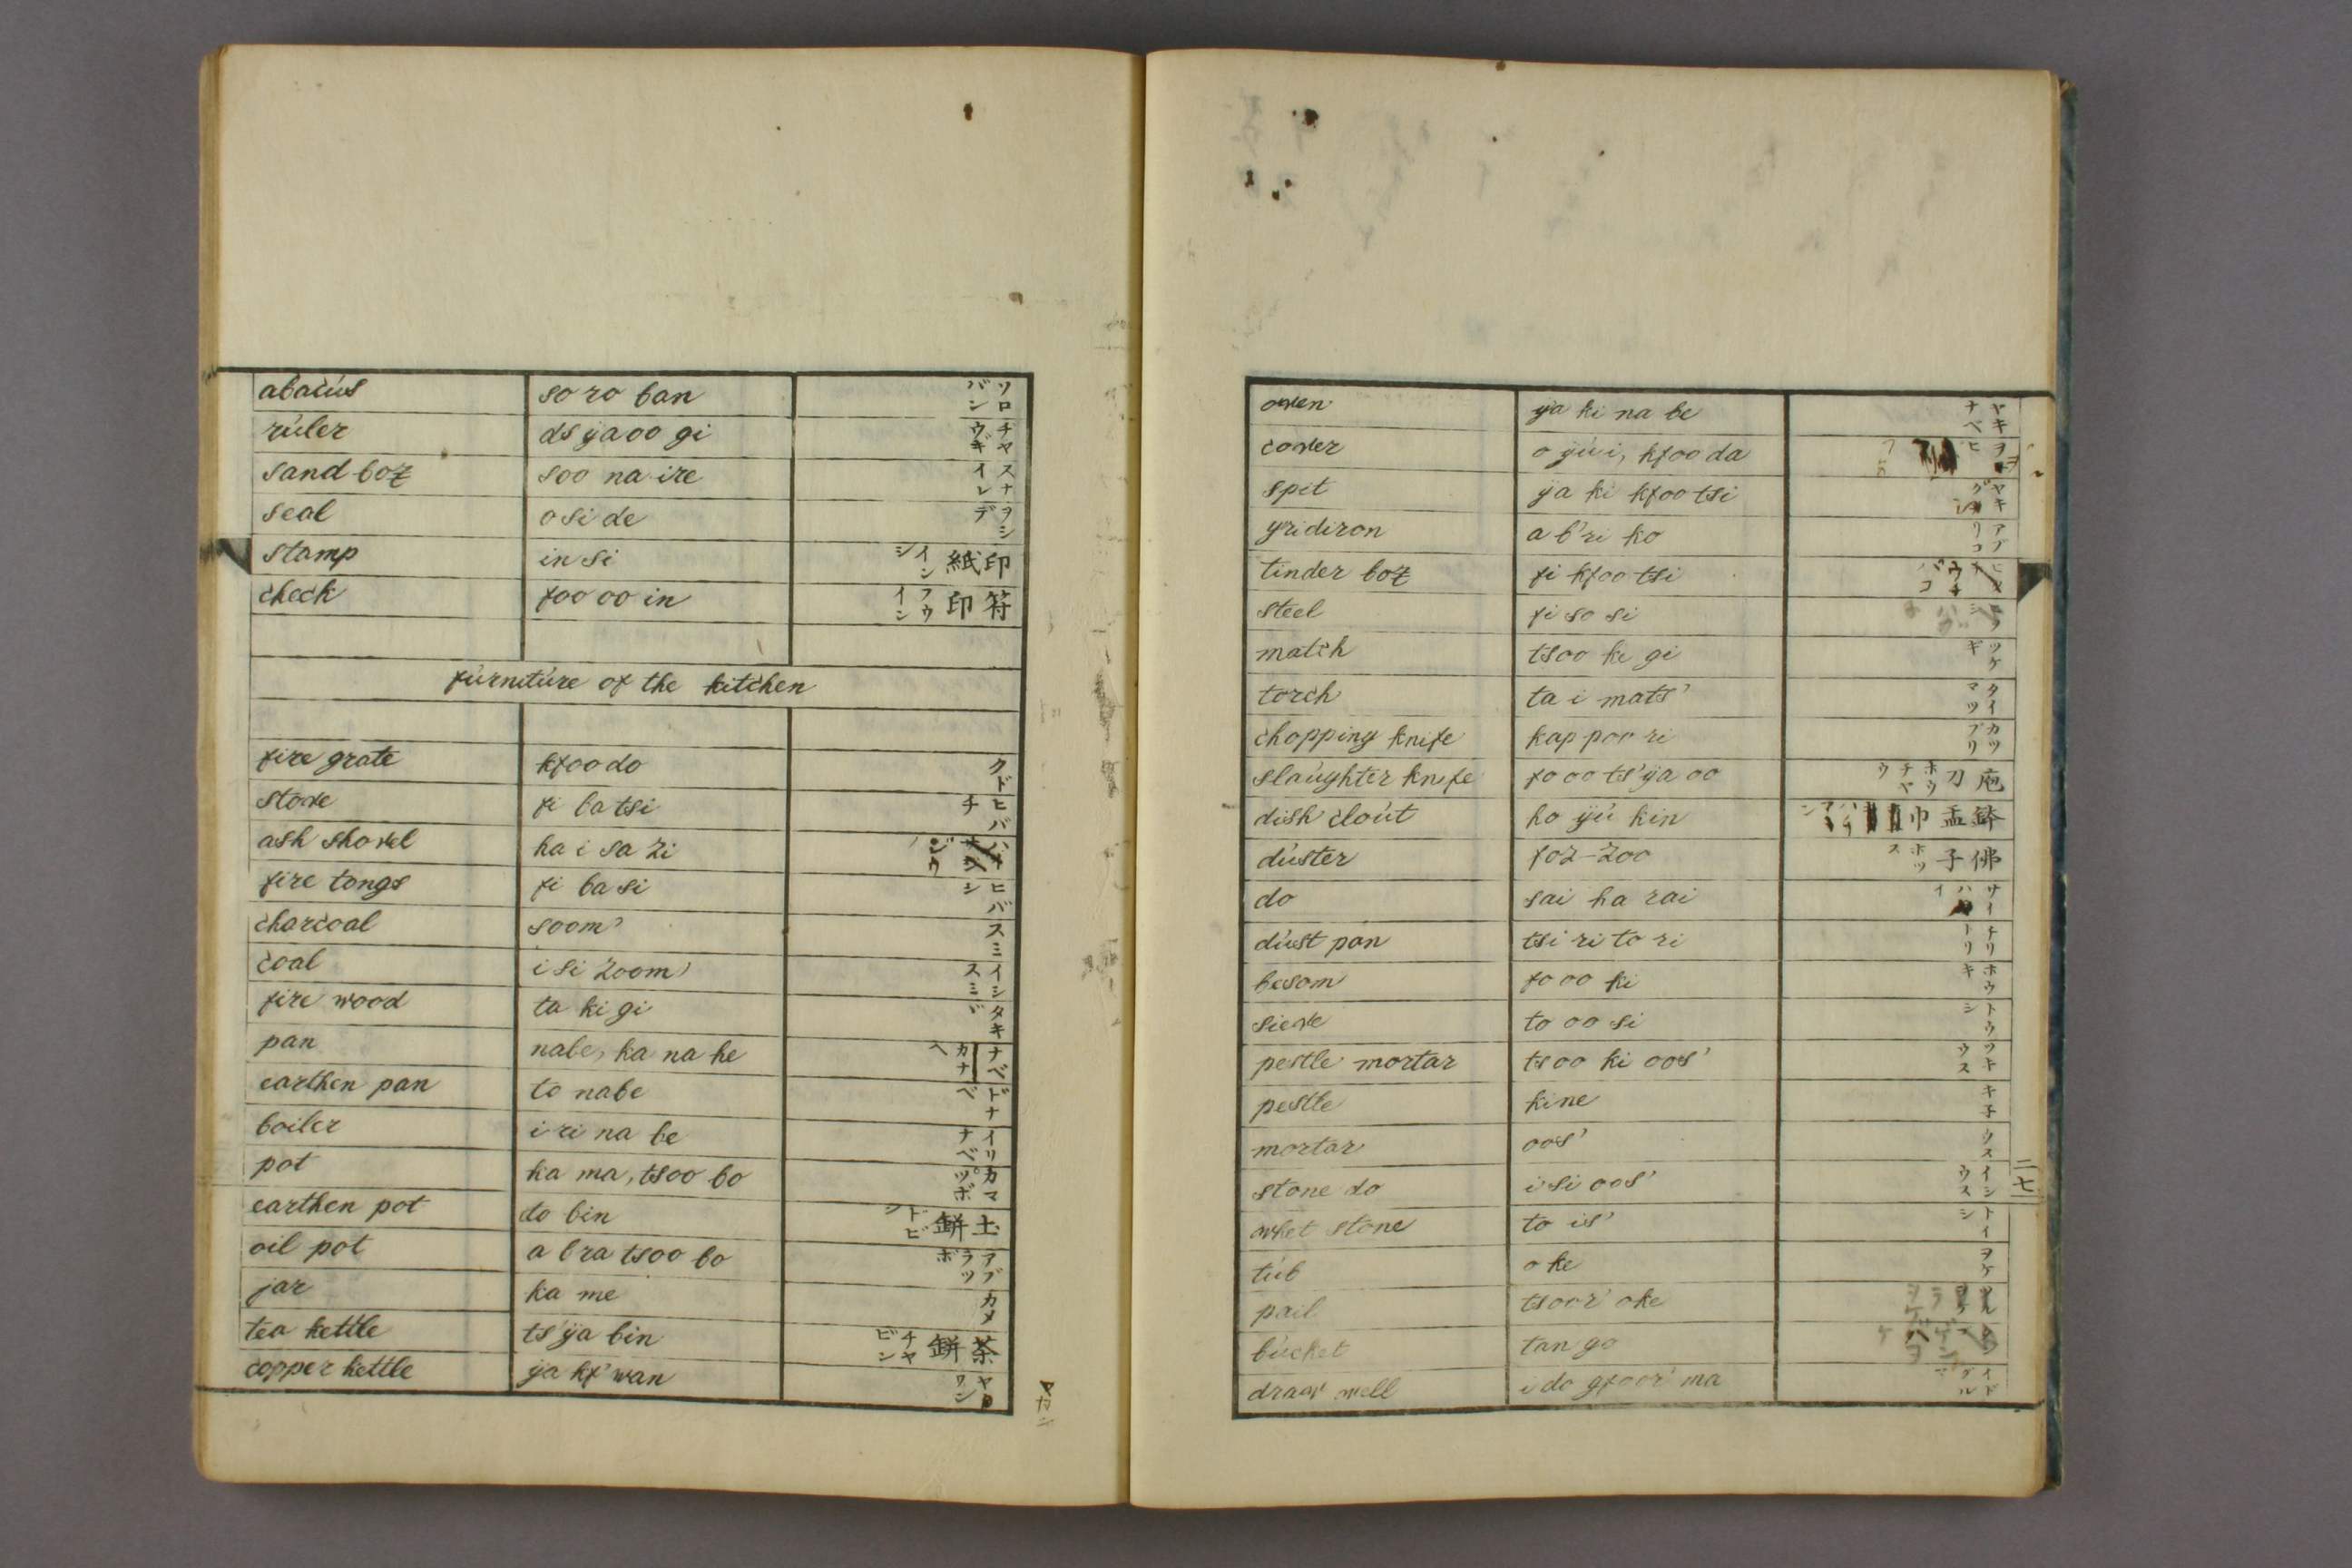 abacús so ro ban ソロバン
rúler ds ÿa oo gi チヤウギ
sand box soo na ire スナイレ
seal o si de ヲシデ
stamp in si 印紙 インシ
check foo oo in 符印 フウイン
fúrnitúre of the kitchen
fire grate kfoo do クド
stove fi ba tsi ヒバチ
ash shovel ha i sa zi
fire tongs fi ba si ヒバシ
charcoal soom' スミ
coal i si zoom' イシスミ
fire wood ta ki gi タキギ
pan nabe, ka na he ナベ カナヘ
earthen pan to nabe ドナベ
boiler i ri na be イリナベ
pot ka ma, tsoo bo カマ ツボ
earthen pot do bin 土缾 ドビン
oil pot a bra tsoo bo アブラツボ
jar ka me カメ
tea kettle ts'ÿa bin 茶缾 チヤビン
copper kettle ÿa kf'wan
oven ÿa ki na be ヤキナベ
cover o ÿú i, kfoo da
spit ÿa ki kfoo tsi
gridiron a b'ri ko アブリコ
tinder box fi kfoo tsi
steel fi so si
match tsoo ke gi ツケギ
torch ta i mats' タイマツ
chopping knife kap poo ri カツプリ
slaúghter knife fo oo ts'ÿa oo 庖刀 ホウチヤウ
dish cloút ho ÿú kin 鉢盂巾
dúster foz-zoo 佛子 ホツス
do sai ha rai
dúst pan tsi ri to ri チリトリ
besom fo oo ki ホウキ
sieve to oo si トウシ
pestle mortar tsoo ki oos' ツキウス
pestle kine キ子
mortar oos' ウス
stone do i si oos' イシウス
whet stone to is' トイシ
túb o ke ヲケ
pail tsoor' oke
búcket tan go
draw well i do gfoor' ma
二七